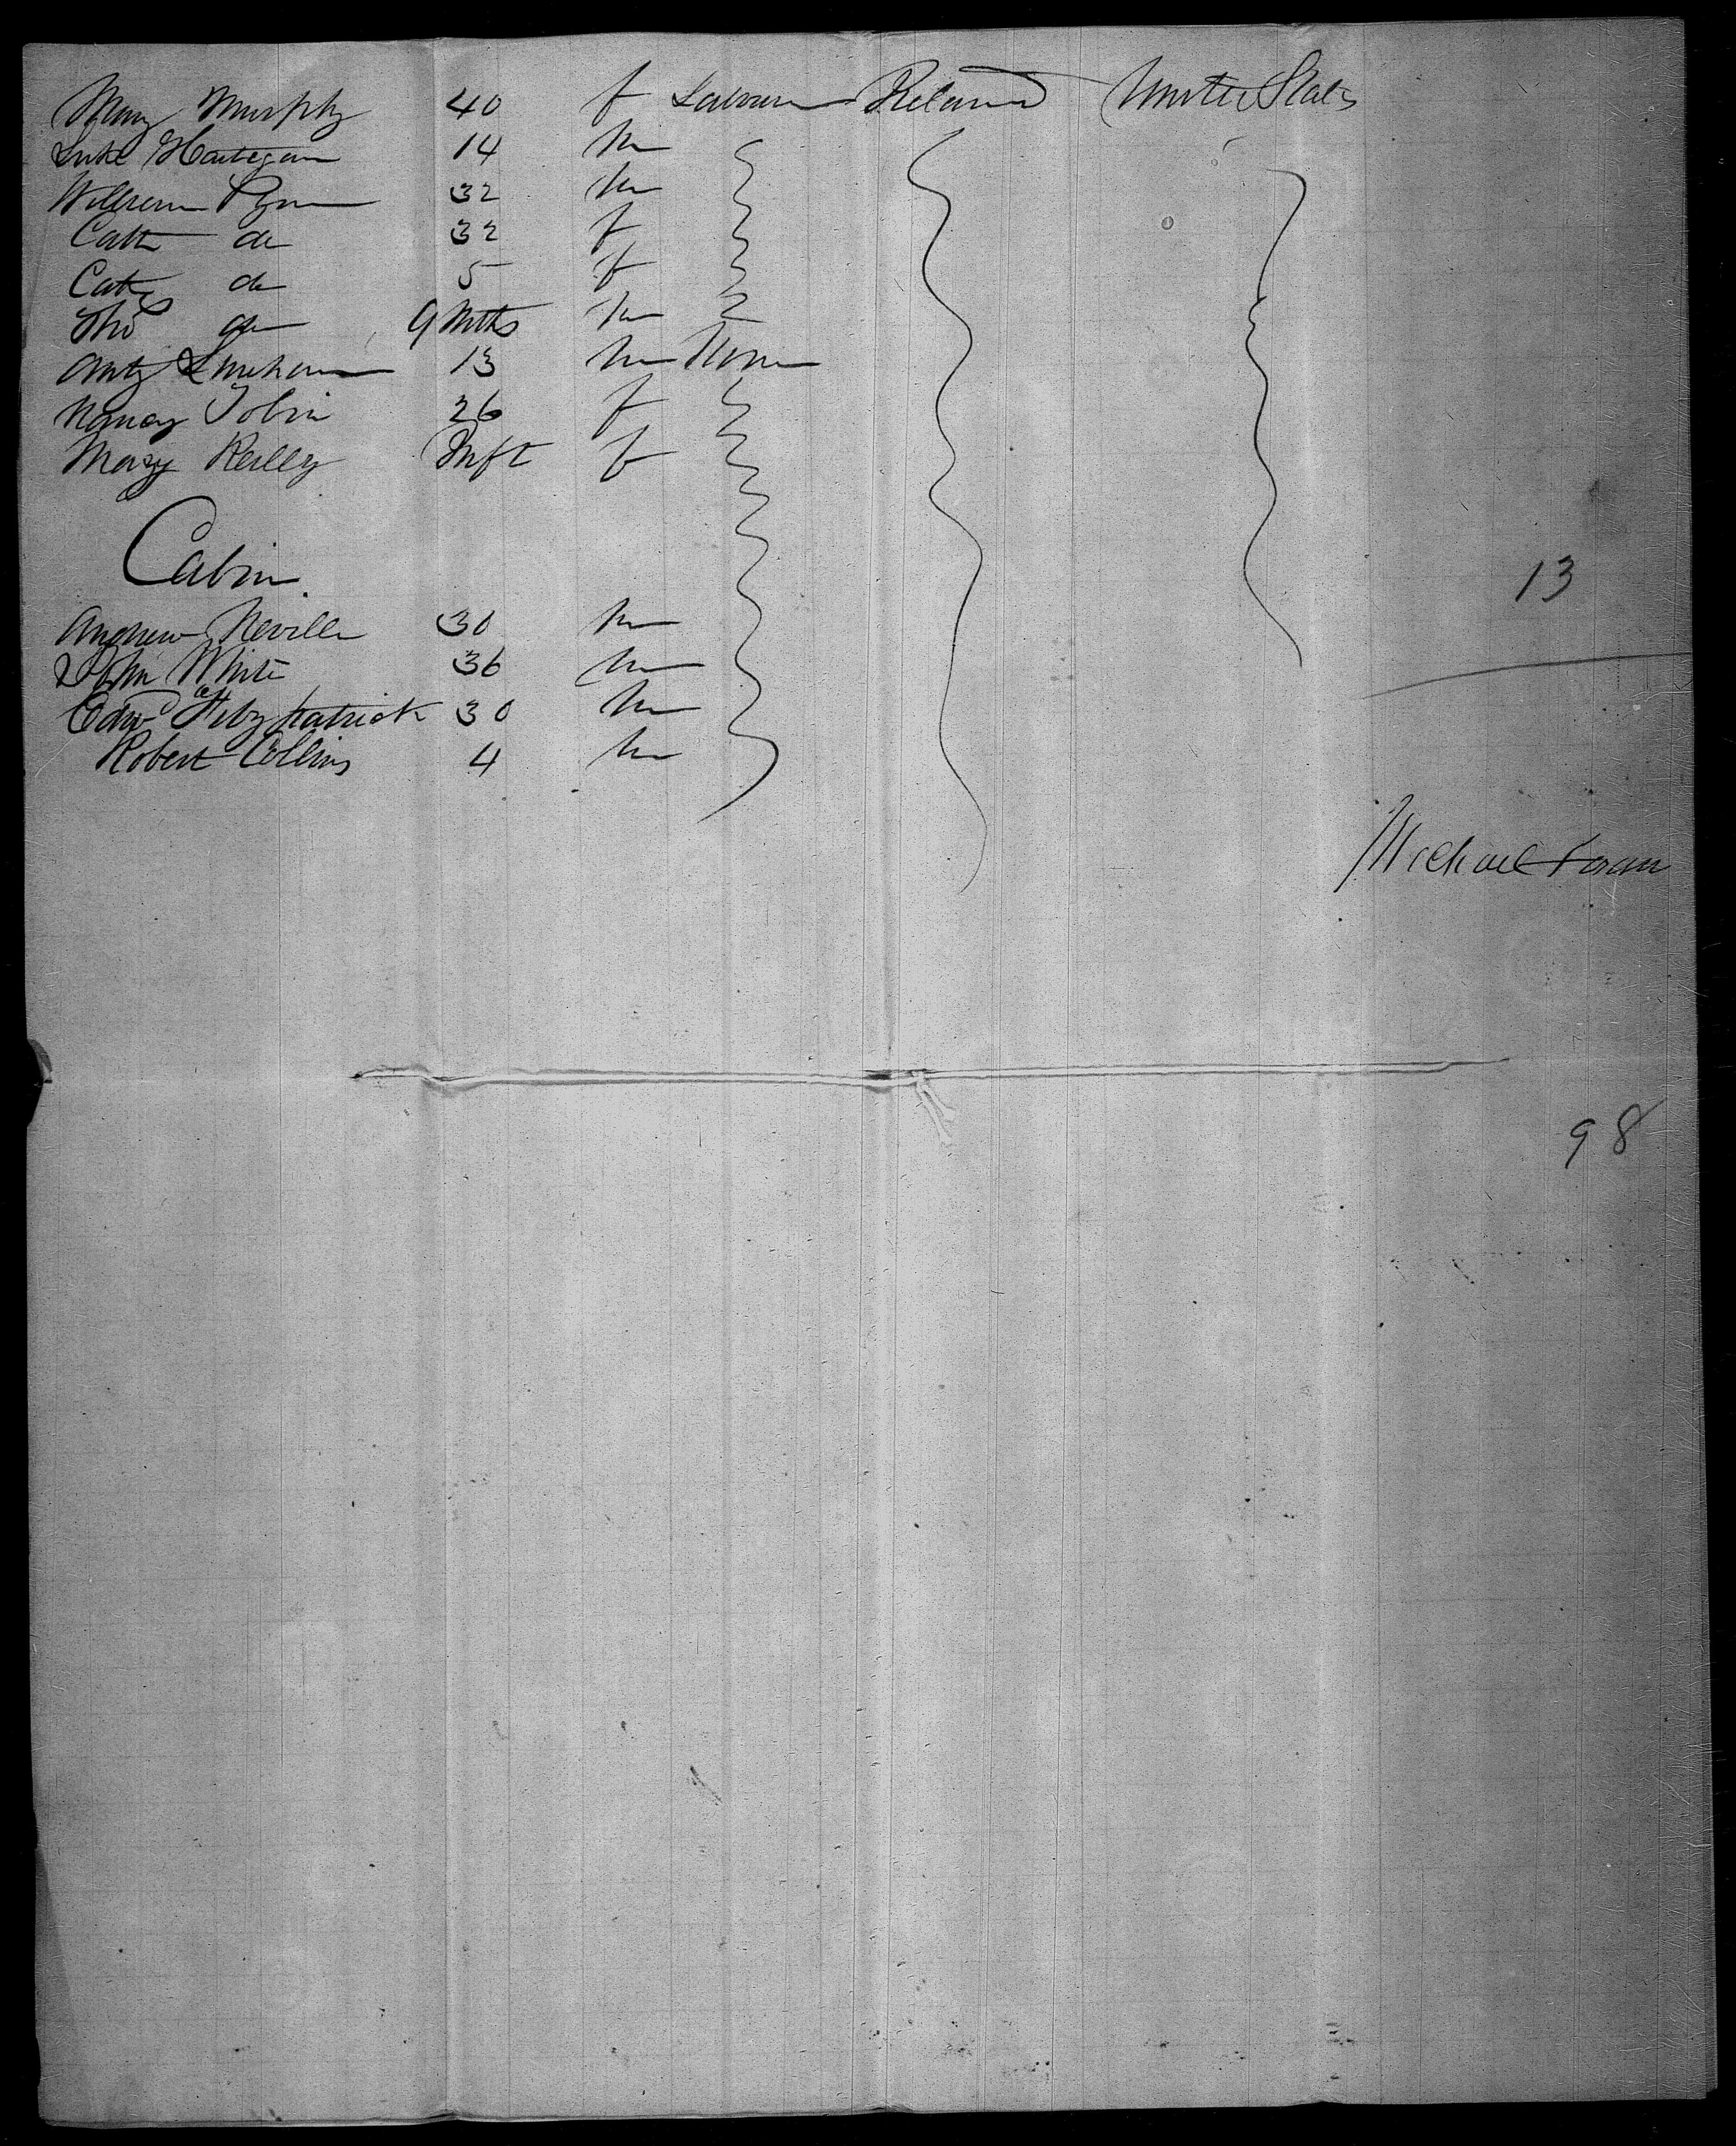 Mary Murphy 40 f Labourer Ireland United States
Luke Hartegan 14 m
William Ryan 32 m
Cath do 32 f
Cath do 5 f
Thos do 9 Mths m
Anty Linehan 13 m None
Nancy Tobin 26 f
Mary Reilly Inft f
Cabin
13
Andrew Neville 30 m
John White 36 m
Edwd Fitzpatrick 30 m
Robert Collins 4 m
Michael
98